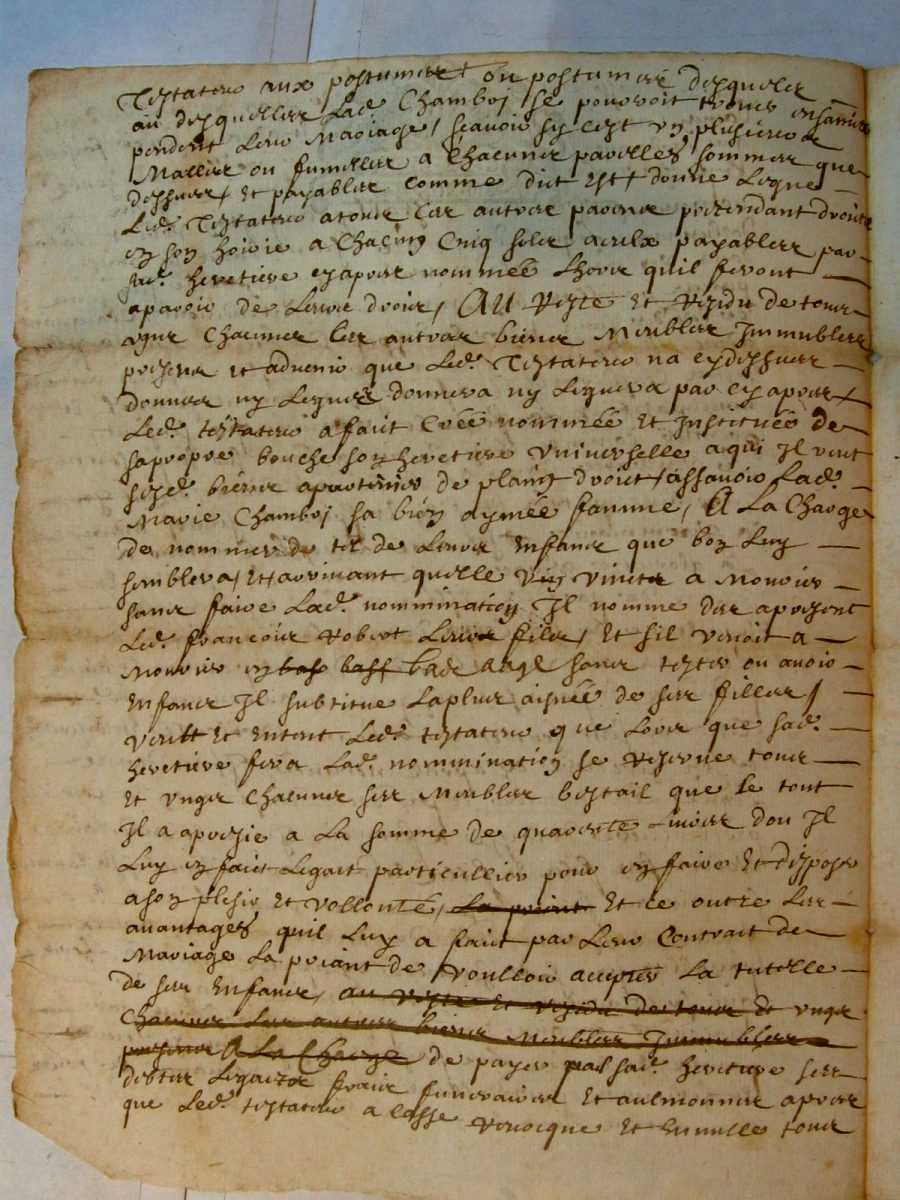 Testateur aux postumes ou postumes desquels
ou desquelles lad. Chamboj se pouvoit trouver ensaincte
pendent leur mariage, scavoir sy cest un plusieurs
malles ou fumelles a chacune pareilles sommes que
dessus, et payables comme dict est, donne legue
led. testateur a tous ses autres parens pretendant droict
en son hoirie a chacung cinq sols a eulx payables par
sad. heretiere cy apres nommée lhors quil feront
aparoir de leurs droits, Au reste et residu de tous
ungs chacuns ses autres biens meubles immubles
presens et advenir que led. testateur na cy dessus
donnes ny legués donnera ny leguera par cy apres,
led. testateur a faict creé nommée et instituée de
sa propre bouche son heretiere universelle a qui il veut
sesd. biens apartenir de plaing droict, assavoir lad.
Marie Chamboj sa bien aymée famme, A la charge
de nommer de tel de leurs enfans que bon luy
semblera, et arrivant quelle vin vint a mourir
sans faire lad. nommination il nomme des apresent
led. francois robert leur filz, et sil venoit a
mourir en bas bass bade aage sans tester ou avoir
enfans il substitue la plus aisnée de ses filles,
veult et entent led. testateur que lors que sad.
heretiere fera lad. nommination se reserve tous
et ungs chacuns ses meubles bestail que le tout
il a apresie a la somme de quarente livres dou il
luy en faict legat particullier pour en faire et disposer
a son plesir et vollonté, la priant et ce outre les
avantages quil luy a faict par leur contrait de
mariage la priant de voulloir accepter la tutelle
de ses enfans, au reste et residu de tous et ungs
chacuns ses autres biens meubles immubles
presens A la charge de payer par sad. heretiere ses
debtes legaitz frais funeraires et aulmonnes apres
que led. testateur a casse revocque et annulle tous